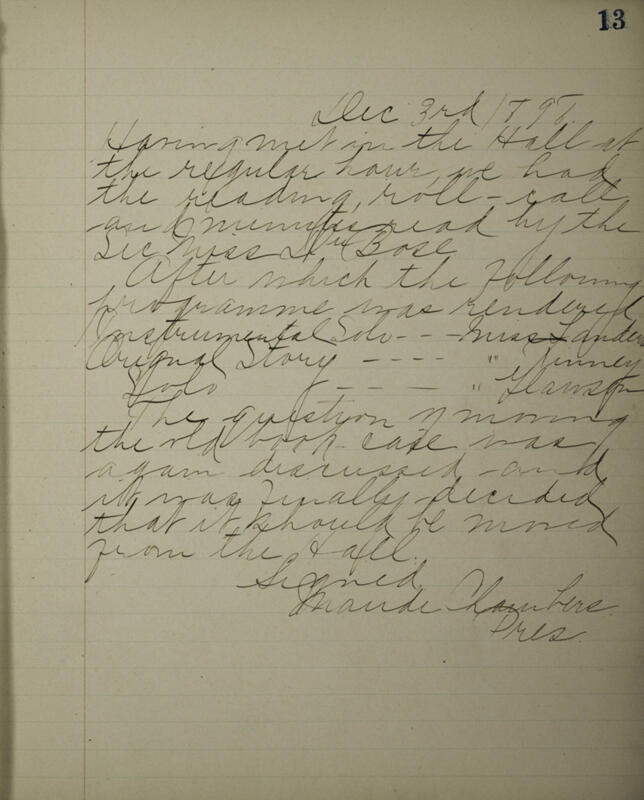 13
Dec 3rd 1898
Having met in the Hall at
the regular hour, we had
the reading, roll-call
and minutes read by the
Sec Miss Du Bose
After which the following
programme was rendered
Instrumental Solo - - - Miss Landers
Original Story - - - - " Kinney
Solo - - - "
The question of moving
the old book case was
again discussed and
it was finally decided
that it should be moved
from the Hall.
Signed
Maude Chambers.
Pres.